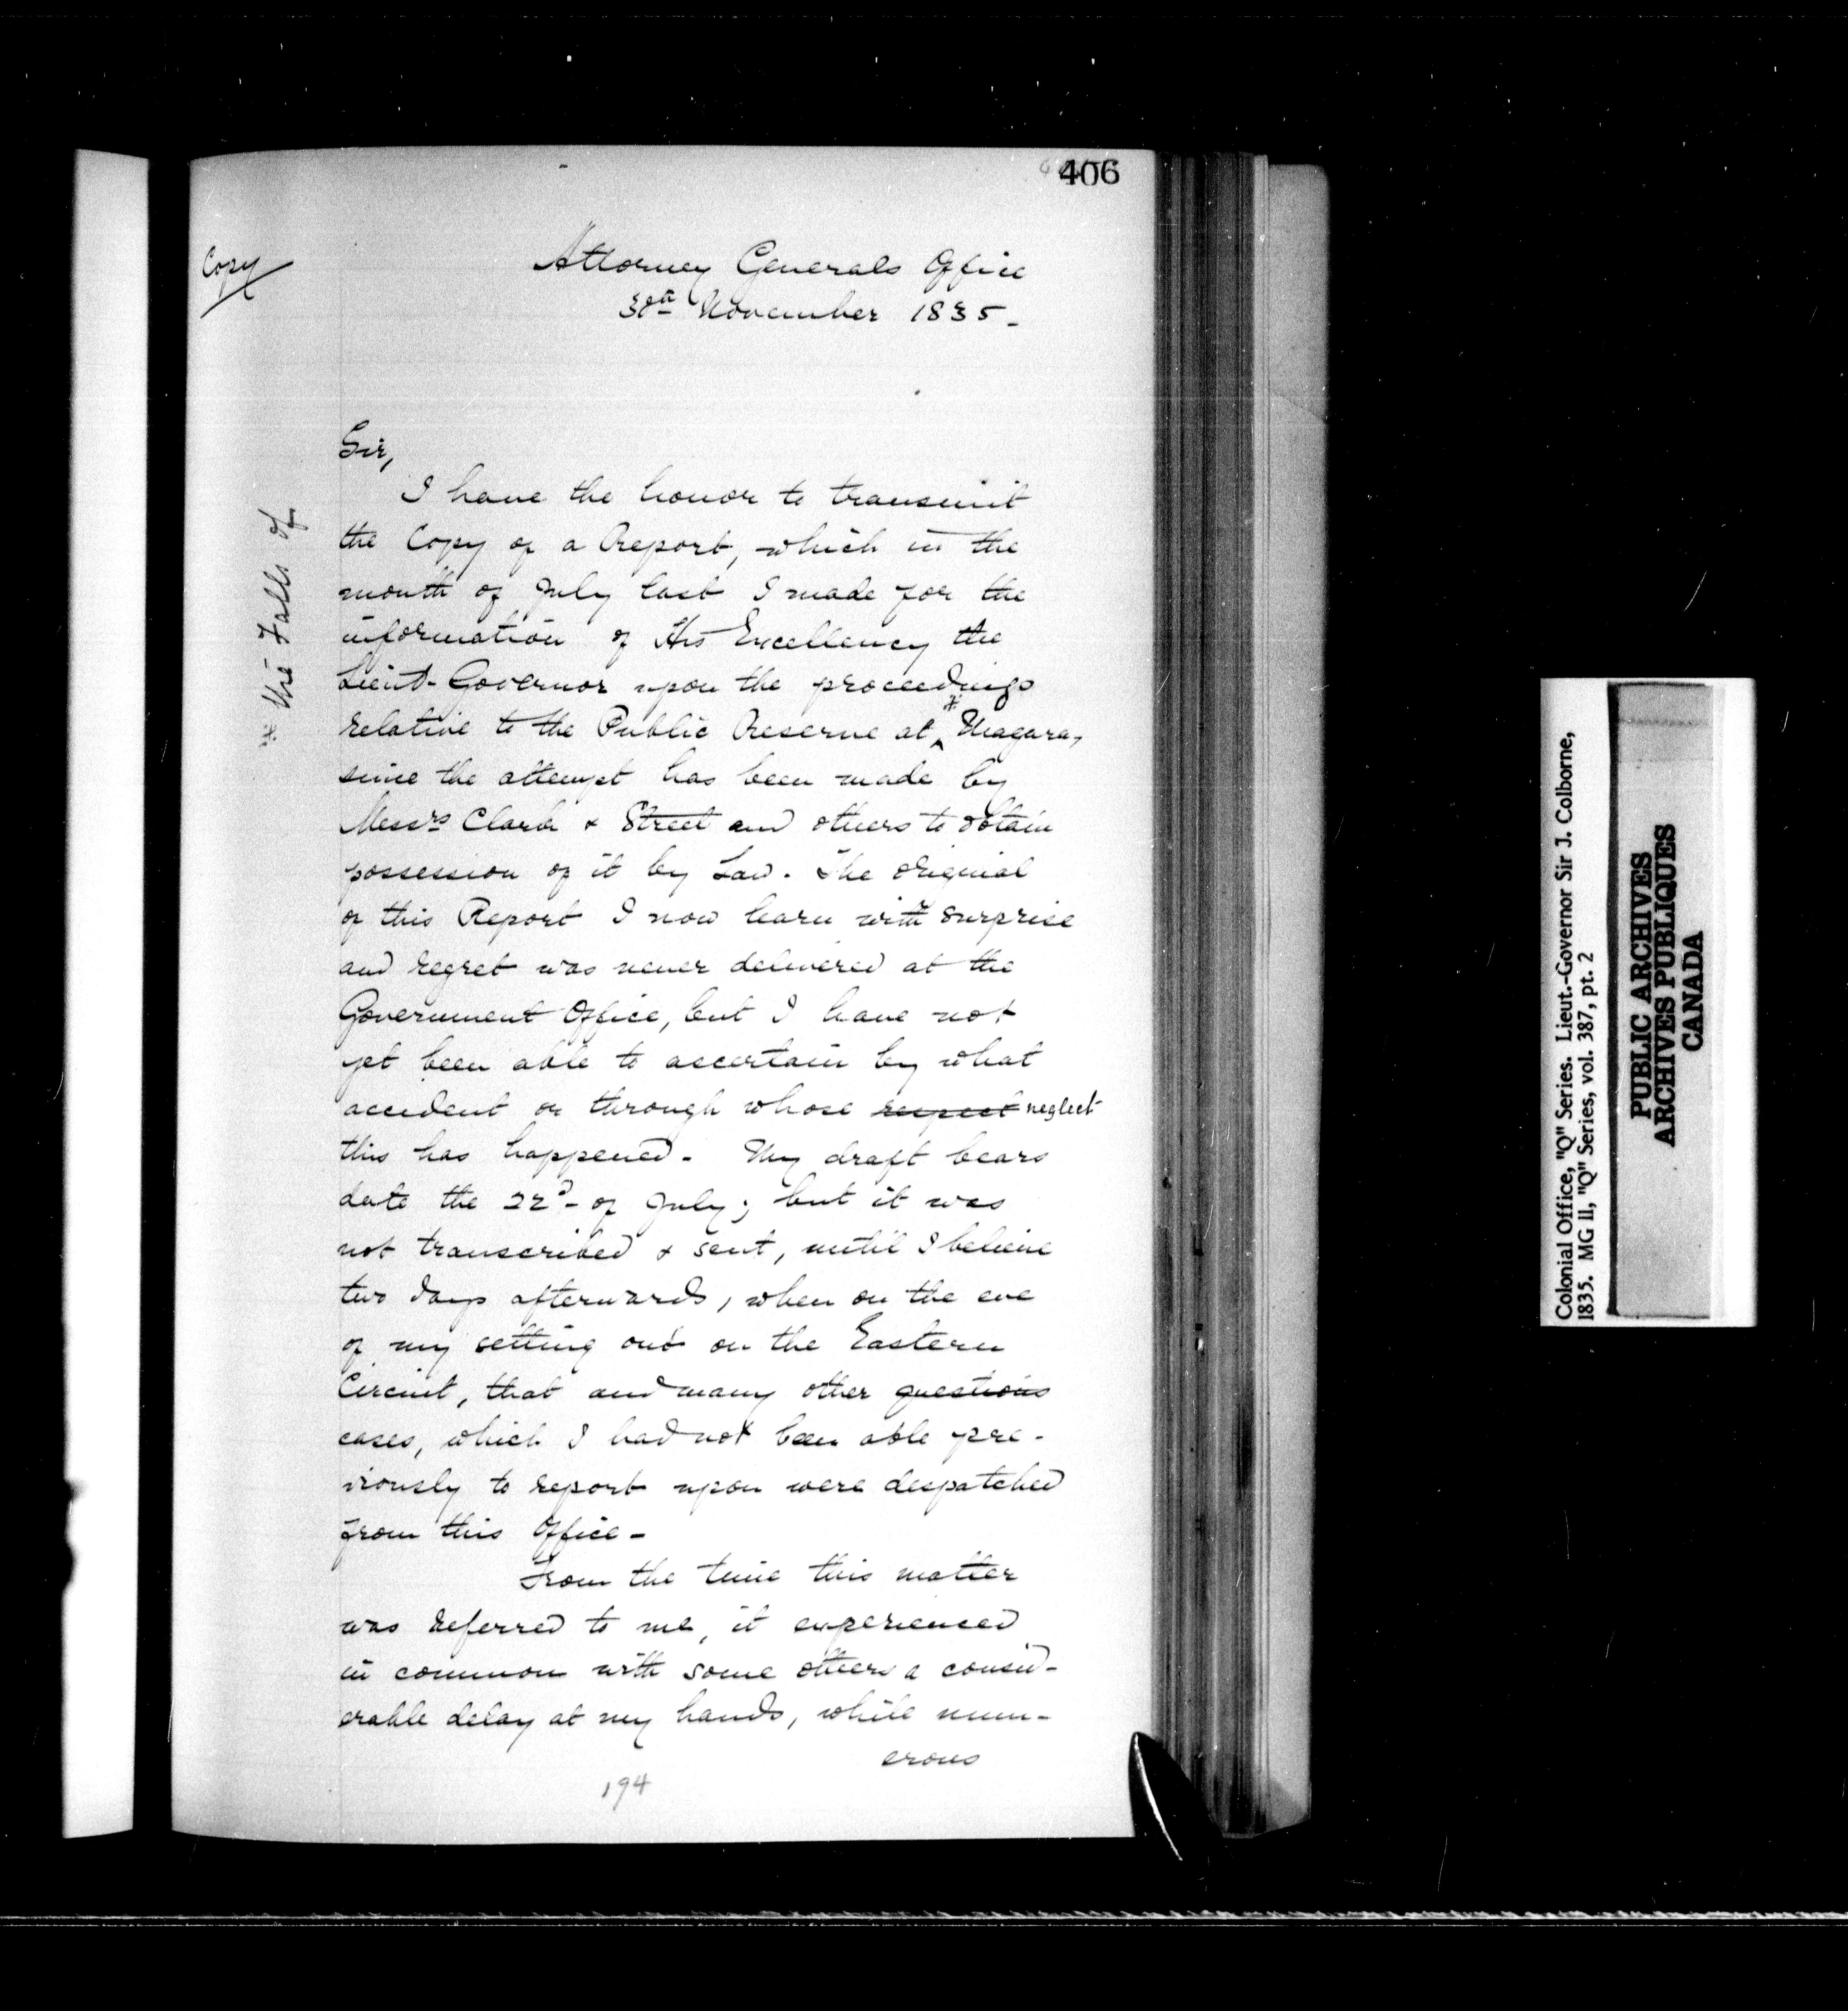 406
Copy
Attorney Generals Office
30th November 1835-
Sir,
I have the honor to transmit
the Copy of a Report, which in the
month of July last I made for the
information of His Excellency the
Lieut-Governor upon the proceedings
relative to the Public Reserve at ^* Niagara,
* the Falls of
since the attempt has been made by
Messrs Clark & Street and others to obtain
possession of it by Law. The original
of this Report I now learn with surprise
and regret was never delivered at the
Government Office, but I have not
yet been able to ascertain by what
accident or through whose respect neglect
this has happened- My draft bears
date the 22d- of July; but it was
not transcribed & sent, until I believe
two days afterwards, when on the eve
of my setting out on the Eastern
Circuit, that and many other questions
cases, which I had not been able pre-
viously to report upon were despatched
from this Office-
From the time this matter
was referred to me, it experienced
in common with some others a consid-
erable delay at my hands, while num-
erous
194
Colonial Office, "Q" Series. Lieut.-Governor Sir J. Colborne,
1835. MG 11, "Q" Series, vol. 387, pt. 2
PUBLIC ARCHIVES
ARCHIVES PUBLIQUES
CANADA